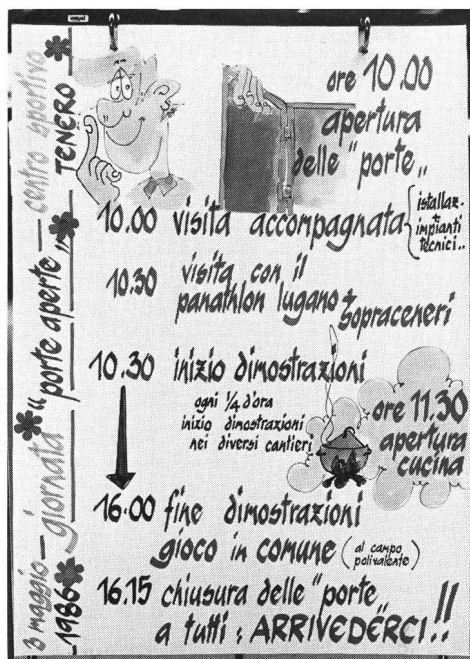 3 maggio — giornata "porte aperte" — centro sportivo
1986
TENERO
ore 10.00
apertura
delle "porte"
10.00 visita accompagnata
istallaz.
impianti
tecnici..
10.30 visita con il
panathlon lugano + sopraceneri
10.30 inizio dimostrazioni
ogni 1/4 d'ora
inizio dimostrazioni
nei diversi cantieri
ore 11.30
apertura
cucina
16.00 fine dimostrazioni
gioco in comune (al campo
polivalente)
16.15 chiusura delle "porte"
a tutti : ARRIVEDERCI..!!